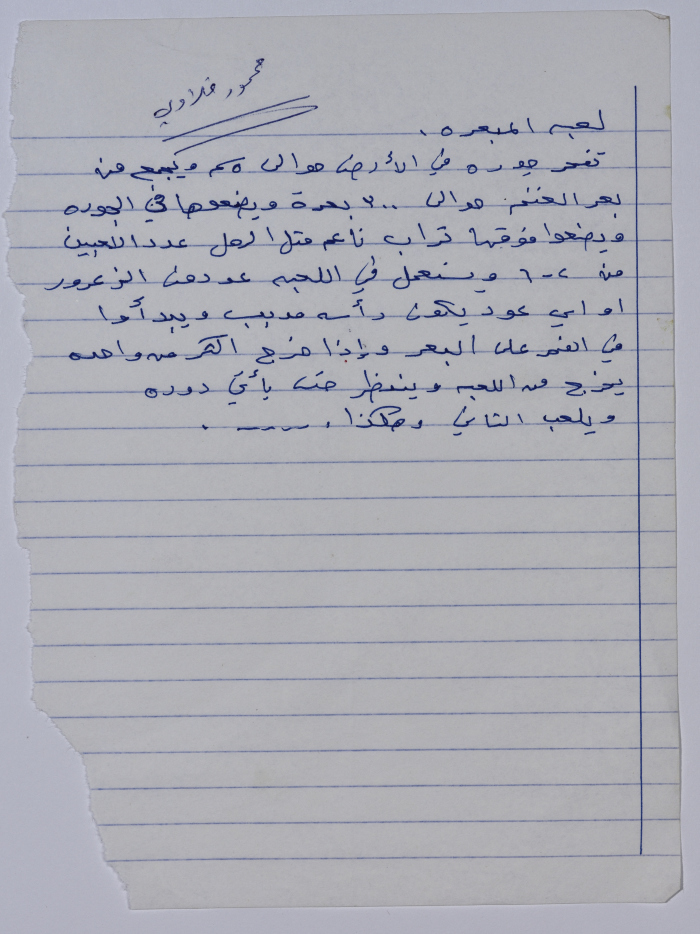 محمود
لعبه المبعره .
تحفر جوره في الأرض حوالي ٥سم ويجمع من
بعر الغنم حوالى ٣٠٠ بعرة ويضعوها في الجوره
ويضعوا فوقها تراب ناعم مثل الرمل عدد اللعبين
من ٢-٦ ويستعمل في اللعبه عود من الزعرور
او اي عود يكون رأسه مدبب ويبدأوا
في الغمر على البعر وإذا خرج اكثر من واحده
يخرج من اللعبه وينتظر حتى يأتي دوره
ويلعب الثاني وهكذا . ..... .